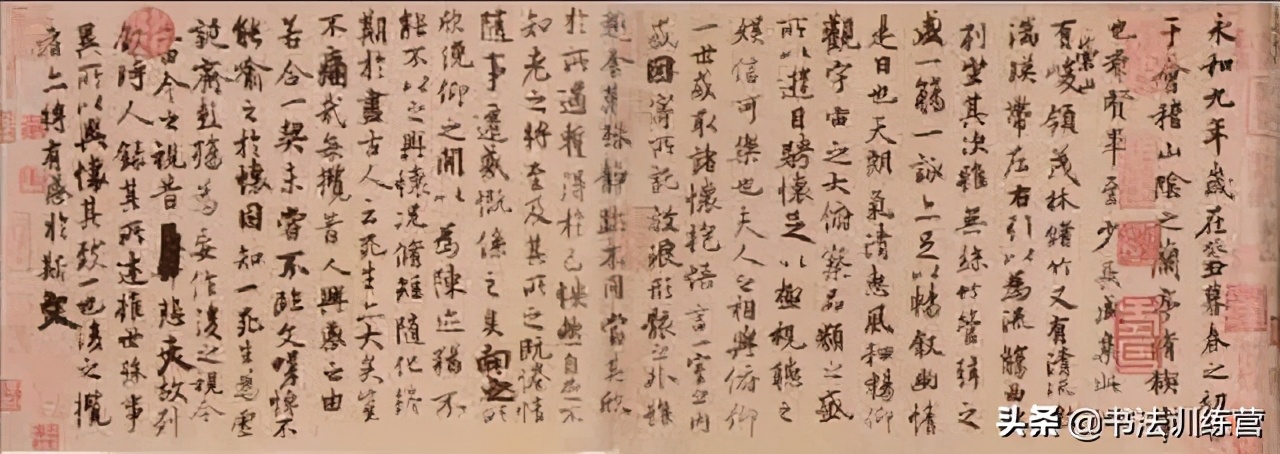 永和九年歲在癸丑暮春之初
于會稽山陰之蘭亭脩稧事
也羣賢畢至少長咸集此
有崇山峻領茂林脩竹又有清流激
湍暎帶左右引以為流觴曲
列坐其次雖無絲竹管弦之
盛一觴一詠亦足以暢敘幽情
是日也天朗氣清惠風和暢仰
觀宇宙之大俯察品類之盛
所以遊目騁懷足以極視聽之
娛信可樂也夫人之相與俯仰
一世或取諸懷抱悟言一室之內
或因寄所託放浪形骸之外雖
趣舍萬殊靜躁不同當其欣
於所遇蹔得於己快然自足不
知老之將至及其所之既惓情
隨事遷感慨係之矣向之所
欣俛仰之閒以為陳迹猶不
能不以之興懷況脩短隨化終
期於盡古人云死生亦大矣豈
不痛哉每攬昔人興感之由
若合一契未嘗不臨文嗟悼不
能喻之於懷固知一死生為虛
誕齊彭殤為妄作後之視今
亦由今之視昔悲夫故列
敘時人錄其所述雖世殊事
異所以興懷其致一也後之攬
者亦將有感於斯文
头条 @书法训练营